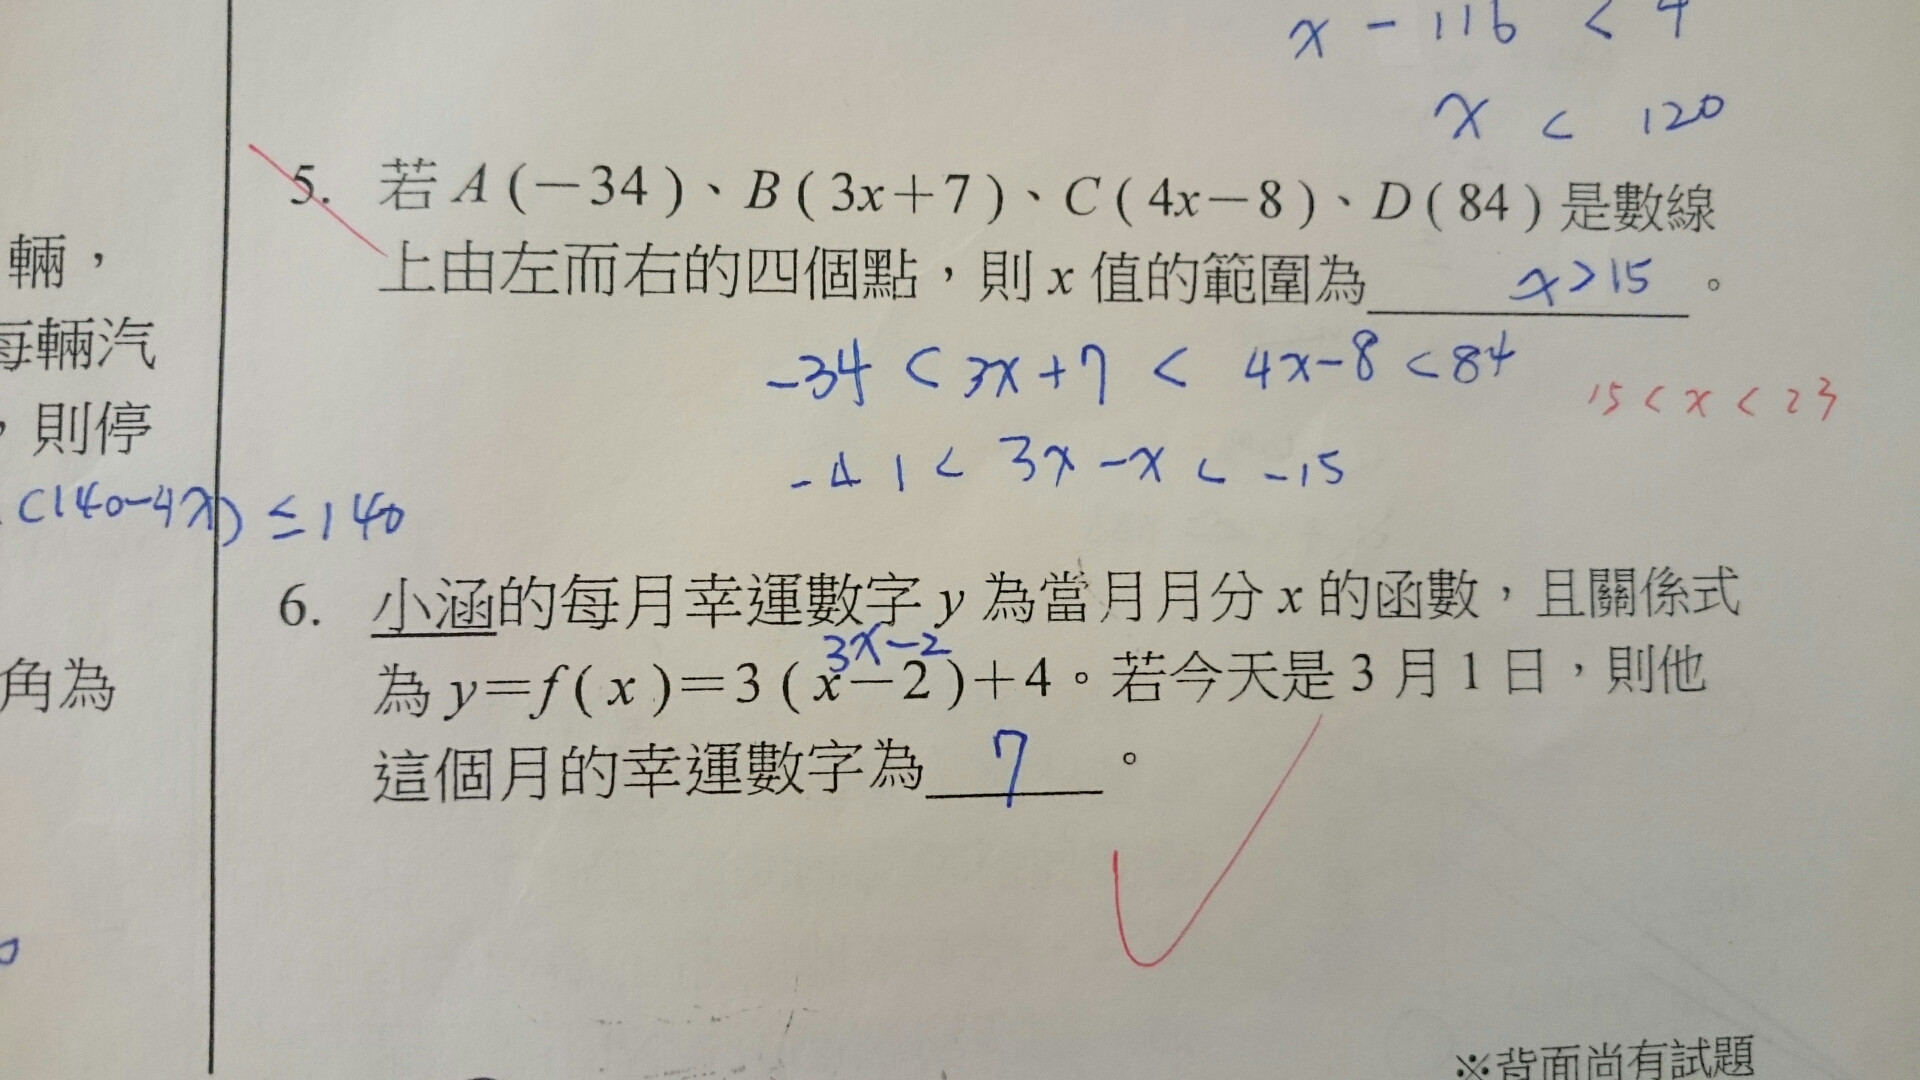 x - 116 < 4
x < 120
5. 若 A (-34)、B ( 3x+7 )、C ( 4x-8 )、D ( 84 ) 是數線
上由左而右的四個點，則 x 值的範圍為 x>15 。
-34 < 3x+7 < 4x-8 < 84
15 < x < 23
-41 < 3x-x < -15
輛，
每輛汽
，則停
(140-4x) ≤ 140
角為
6. 小涵的每月幸運數字 y 為當月月分 x 的函數，且關係式
3x-2
為 y=f( x )=3 ( x-2 )+4。若今天是 3 月 1 日，則他
這個月的幸運數字為 7 。
※背面尚有試題